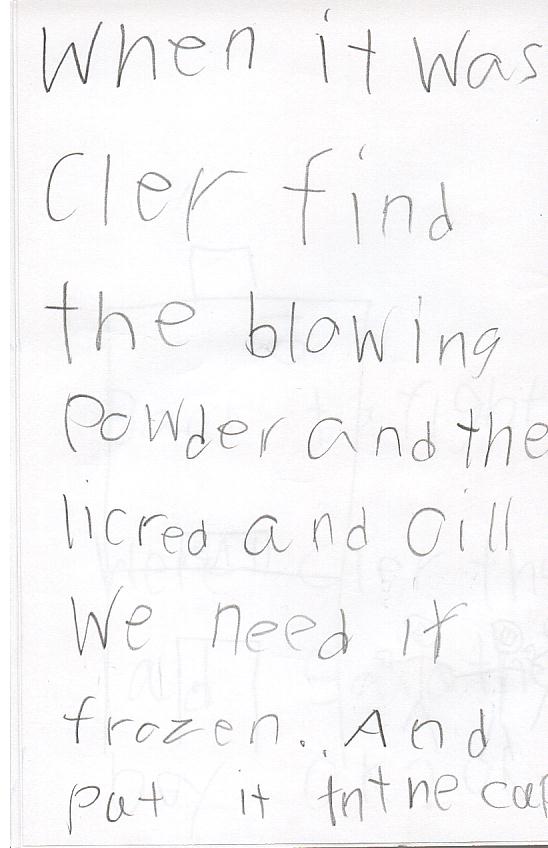 When it was
Cler find
the blowing
Powder and the
licred and Oill
We need it
frozen.. And
put it tnt he cap